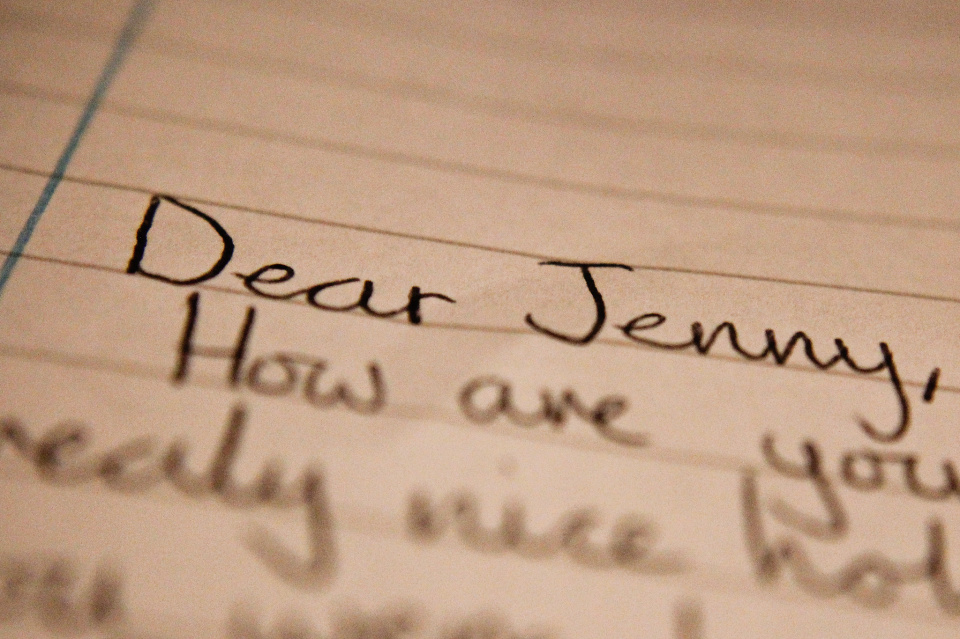 Dear Jenny,
How are you
really nice hol